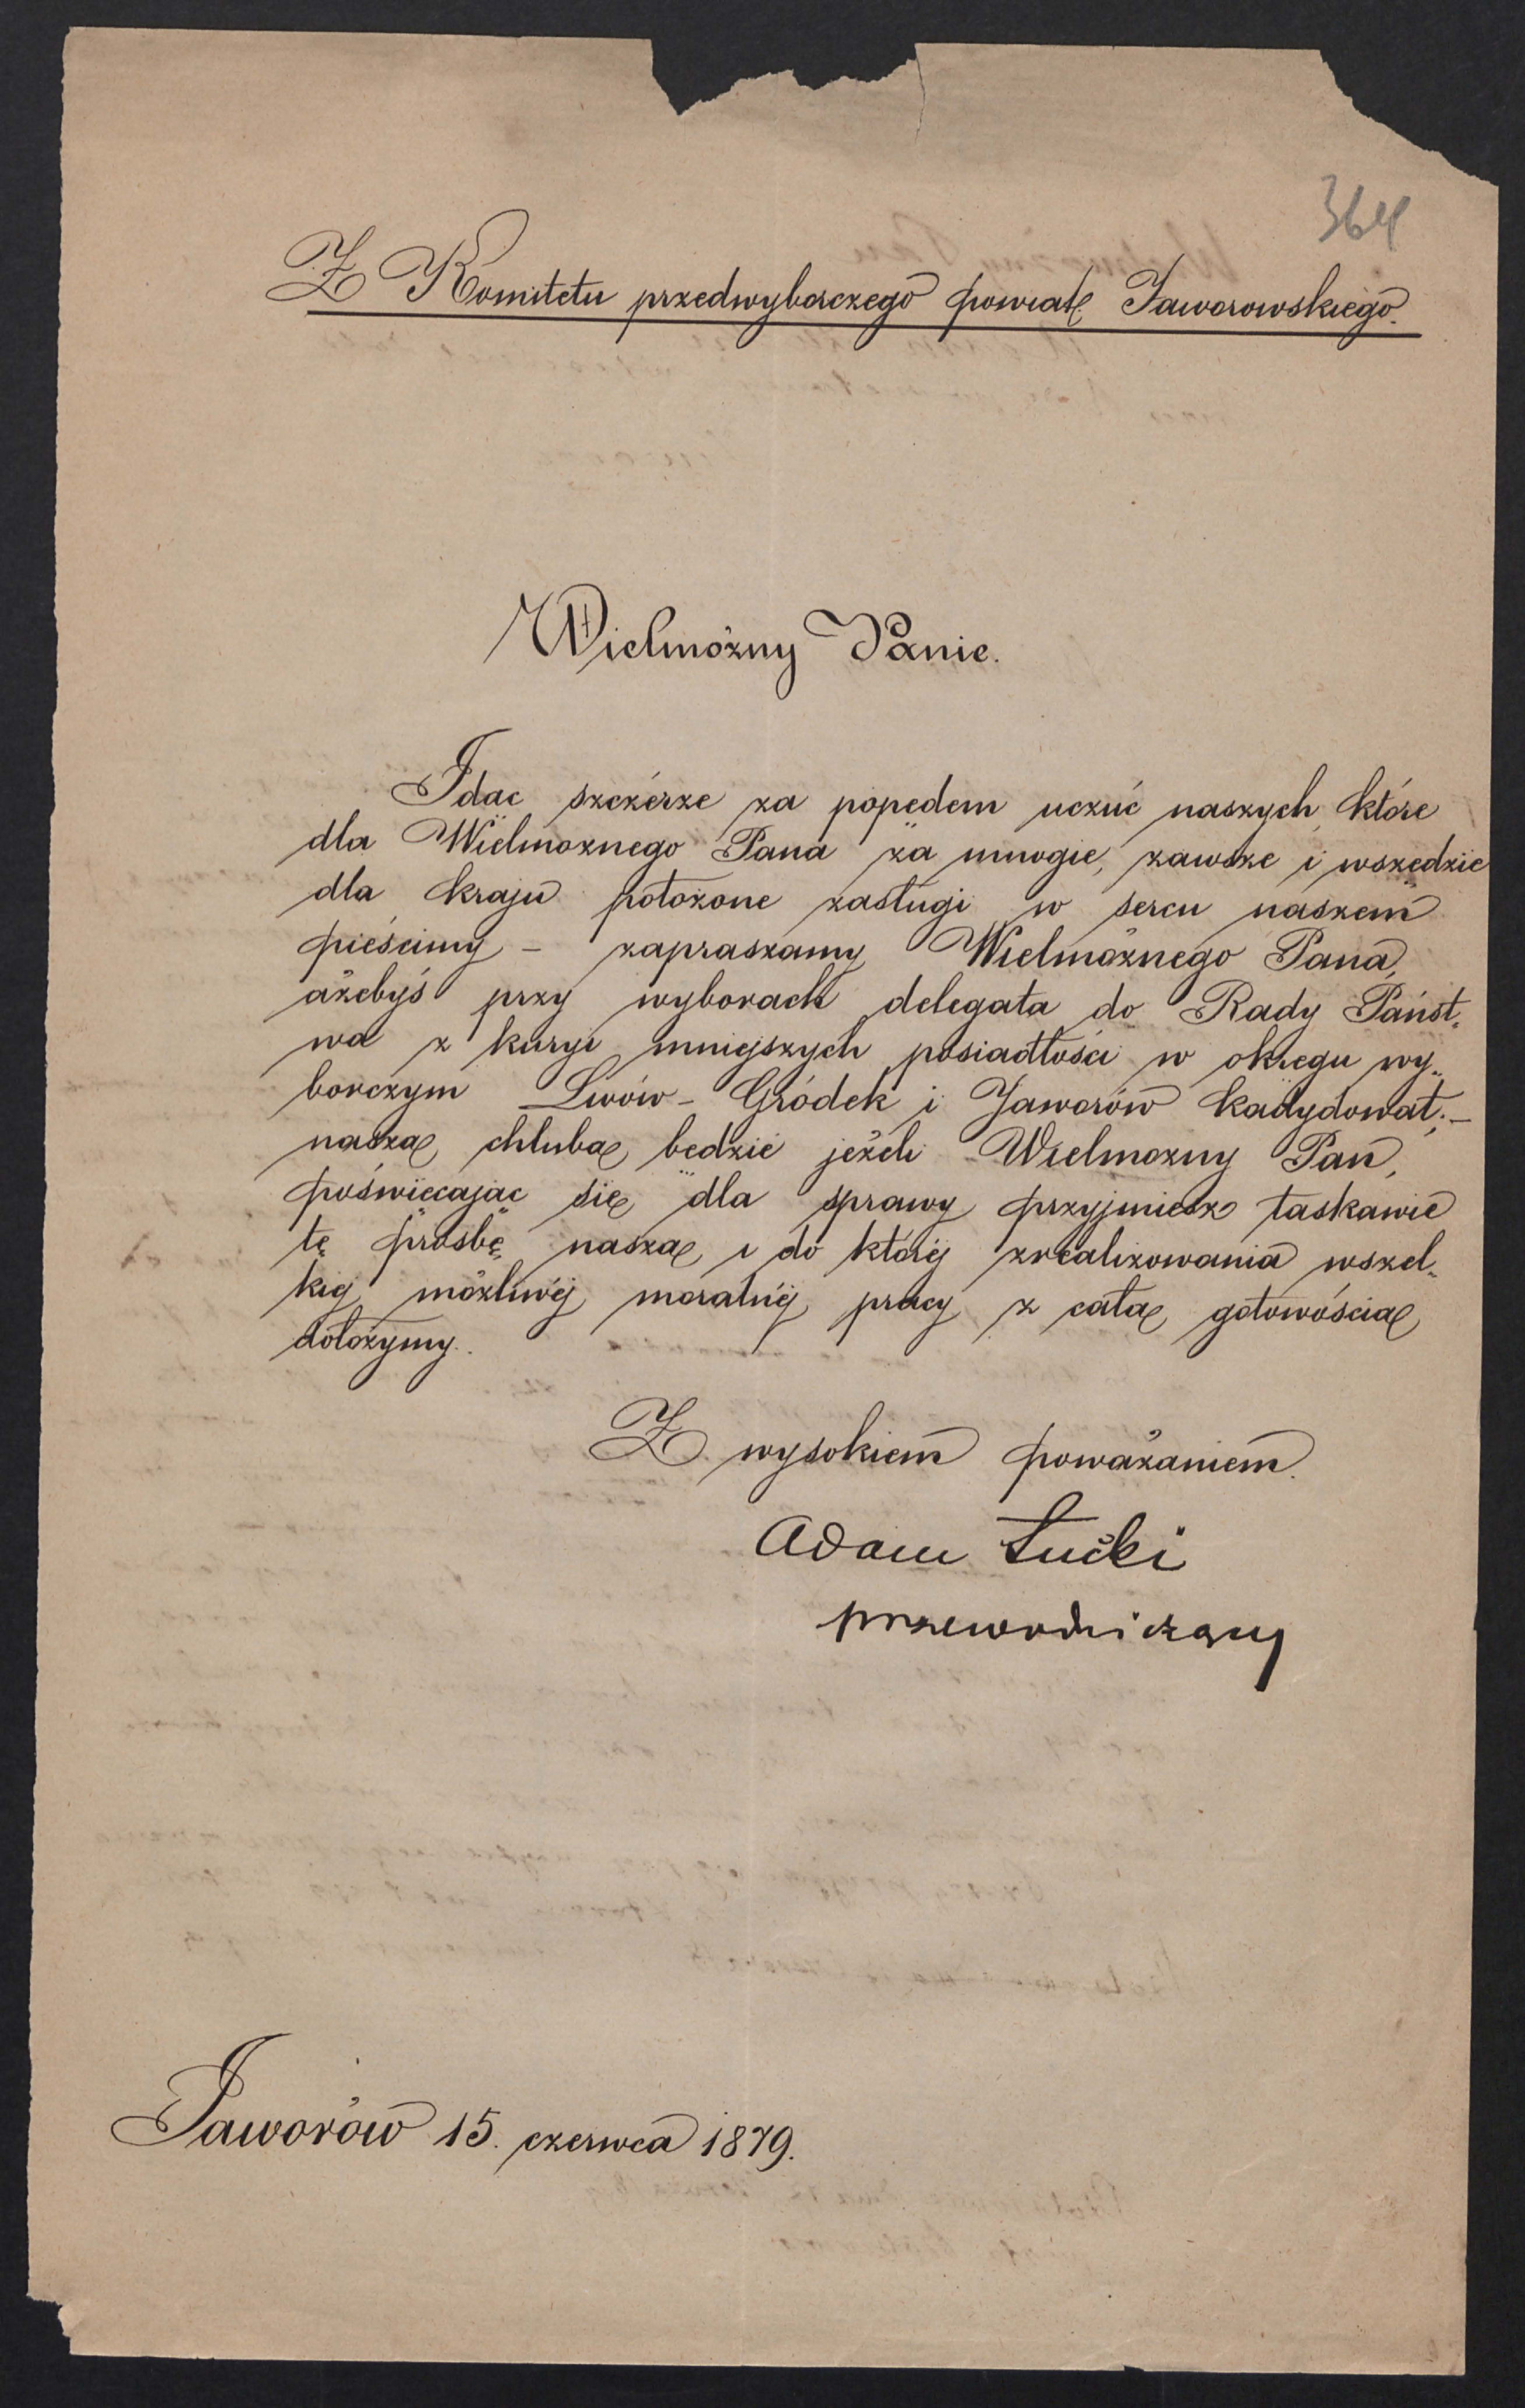 364
Z Komitetu przedwyborczego powiatu Jaworowskiego.
Wielmożny Panie.
Idąc szczérze za popędem uczuć naszych, które
dla Wielmożnego Pana za mnogie, zawsze i wszędzie
dla kraju położone zasługi w sercu naszem
pieścimy – zapraszamy Wielmożnego Pana,
ażebyś przy wyborach delegata do Rady Państ„
wa z kuryi mniejszych posiadłości w okręgu wy„
borczym Lwów – Gródek i Jaworów kadydował; –
naszą chlubą będzie jeżeli Wielmożny Pan,
poświęcając się dla sprawy przyjmiesz łaskawie
tę prośbę naszą i do któréj zrealizowania wszel„
kiej możliwéj moralnéj pracy z całą gotowością
dołożymy.
Z wysokiem poważaniem.
Adam Łucki
przewodniczący
Jaworów 15. czerwca 1879.